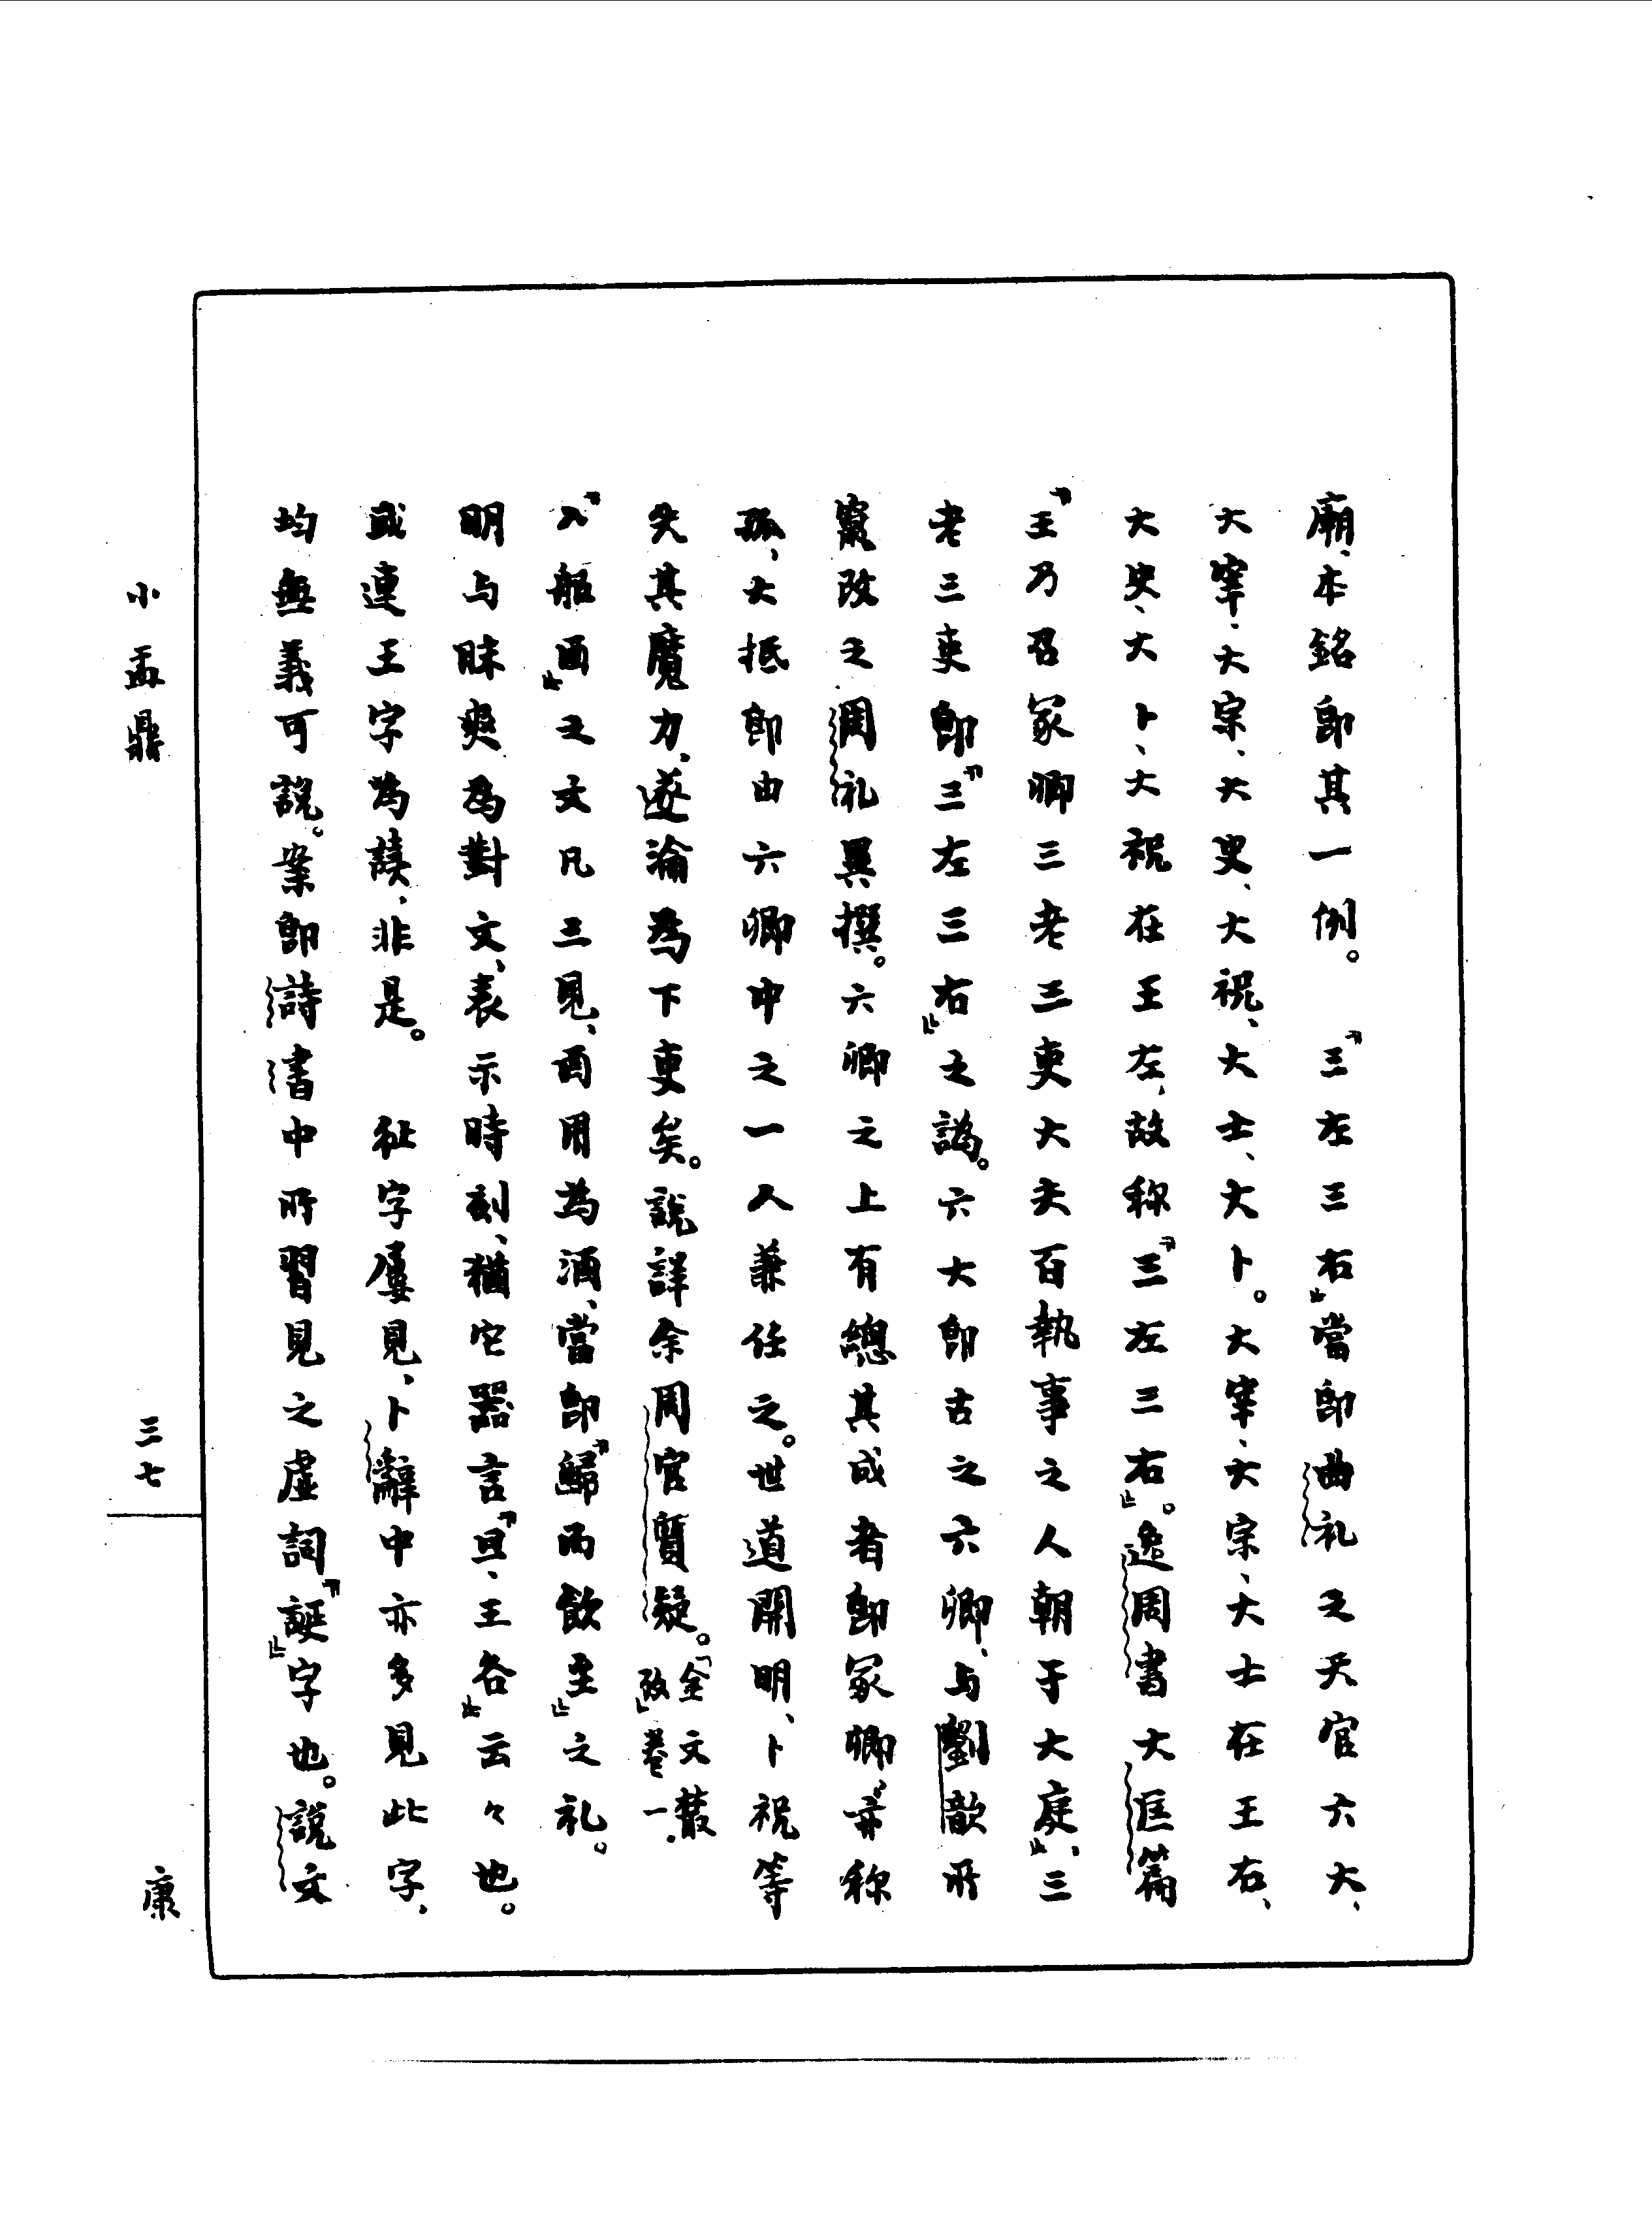 廟、本銘即其一例。 『三左三右』當即曲礼之天官六大、
大宰、大宗、大史、大祝、大士、大卜。大宰、大宗、大士在王右、
大史、大卜、大祝在王左、故称『三左三右』。逸周書大匡篇
『王乃召冢卿三老三吏大夫百執事之人朝于大庭』、三
老三吏即『三左三右』之譌。六大即古之六卿、与劉歆所
竄改之周礼異撰。六卿之上有總其成者即冢卿、亦称
孤、大抵即由六卿中之一人兼任之。世道開明、卜祝等
失其魔力、遂淪為下吏矣。說詳余周官質疑。「金文叢攷」卷一.
『入服酉』之文凡三見、酉用為酒、當即『歸而飲至』之礼。
明与昧爽為對文、表示時刻、猶它器言『旦、王各』云々也。
或連王字為讀、非是。 㱏字屢見、卜辭中亦多見此字、
均無義可說。案即詩書中所習見之虛詞『誕』字也。說文
小盂鼎
三七
康